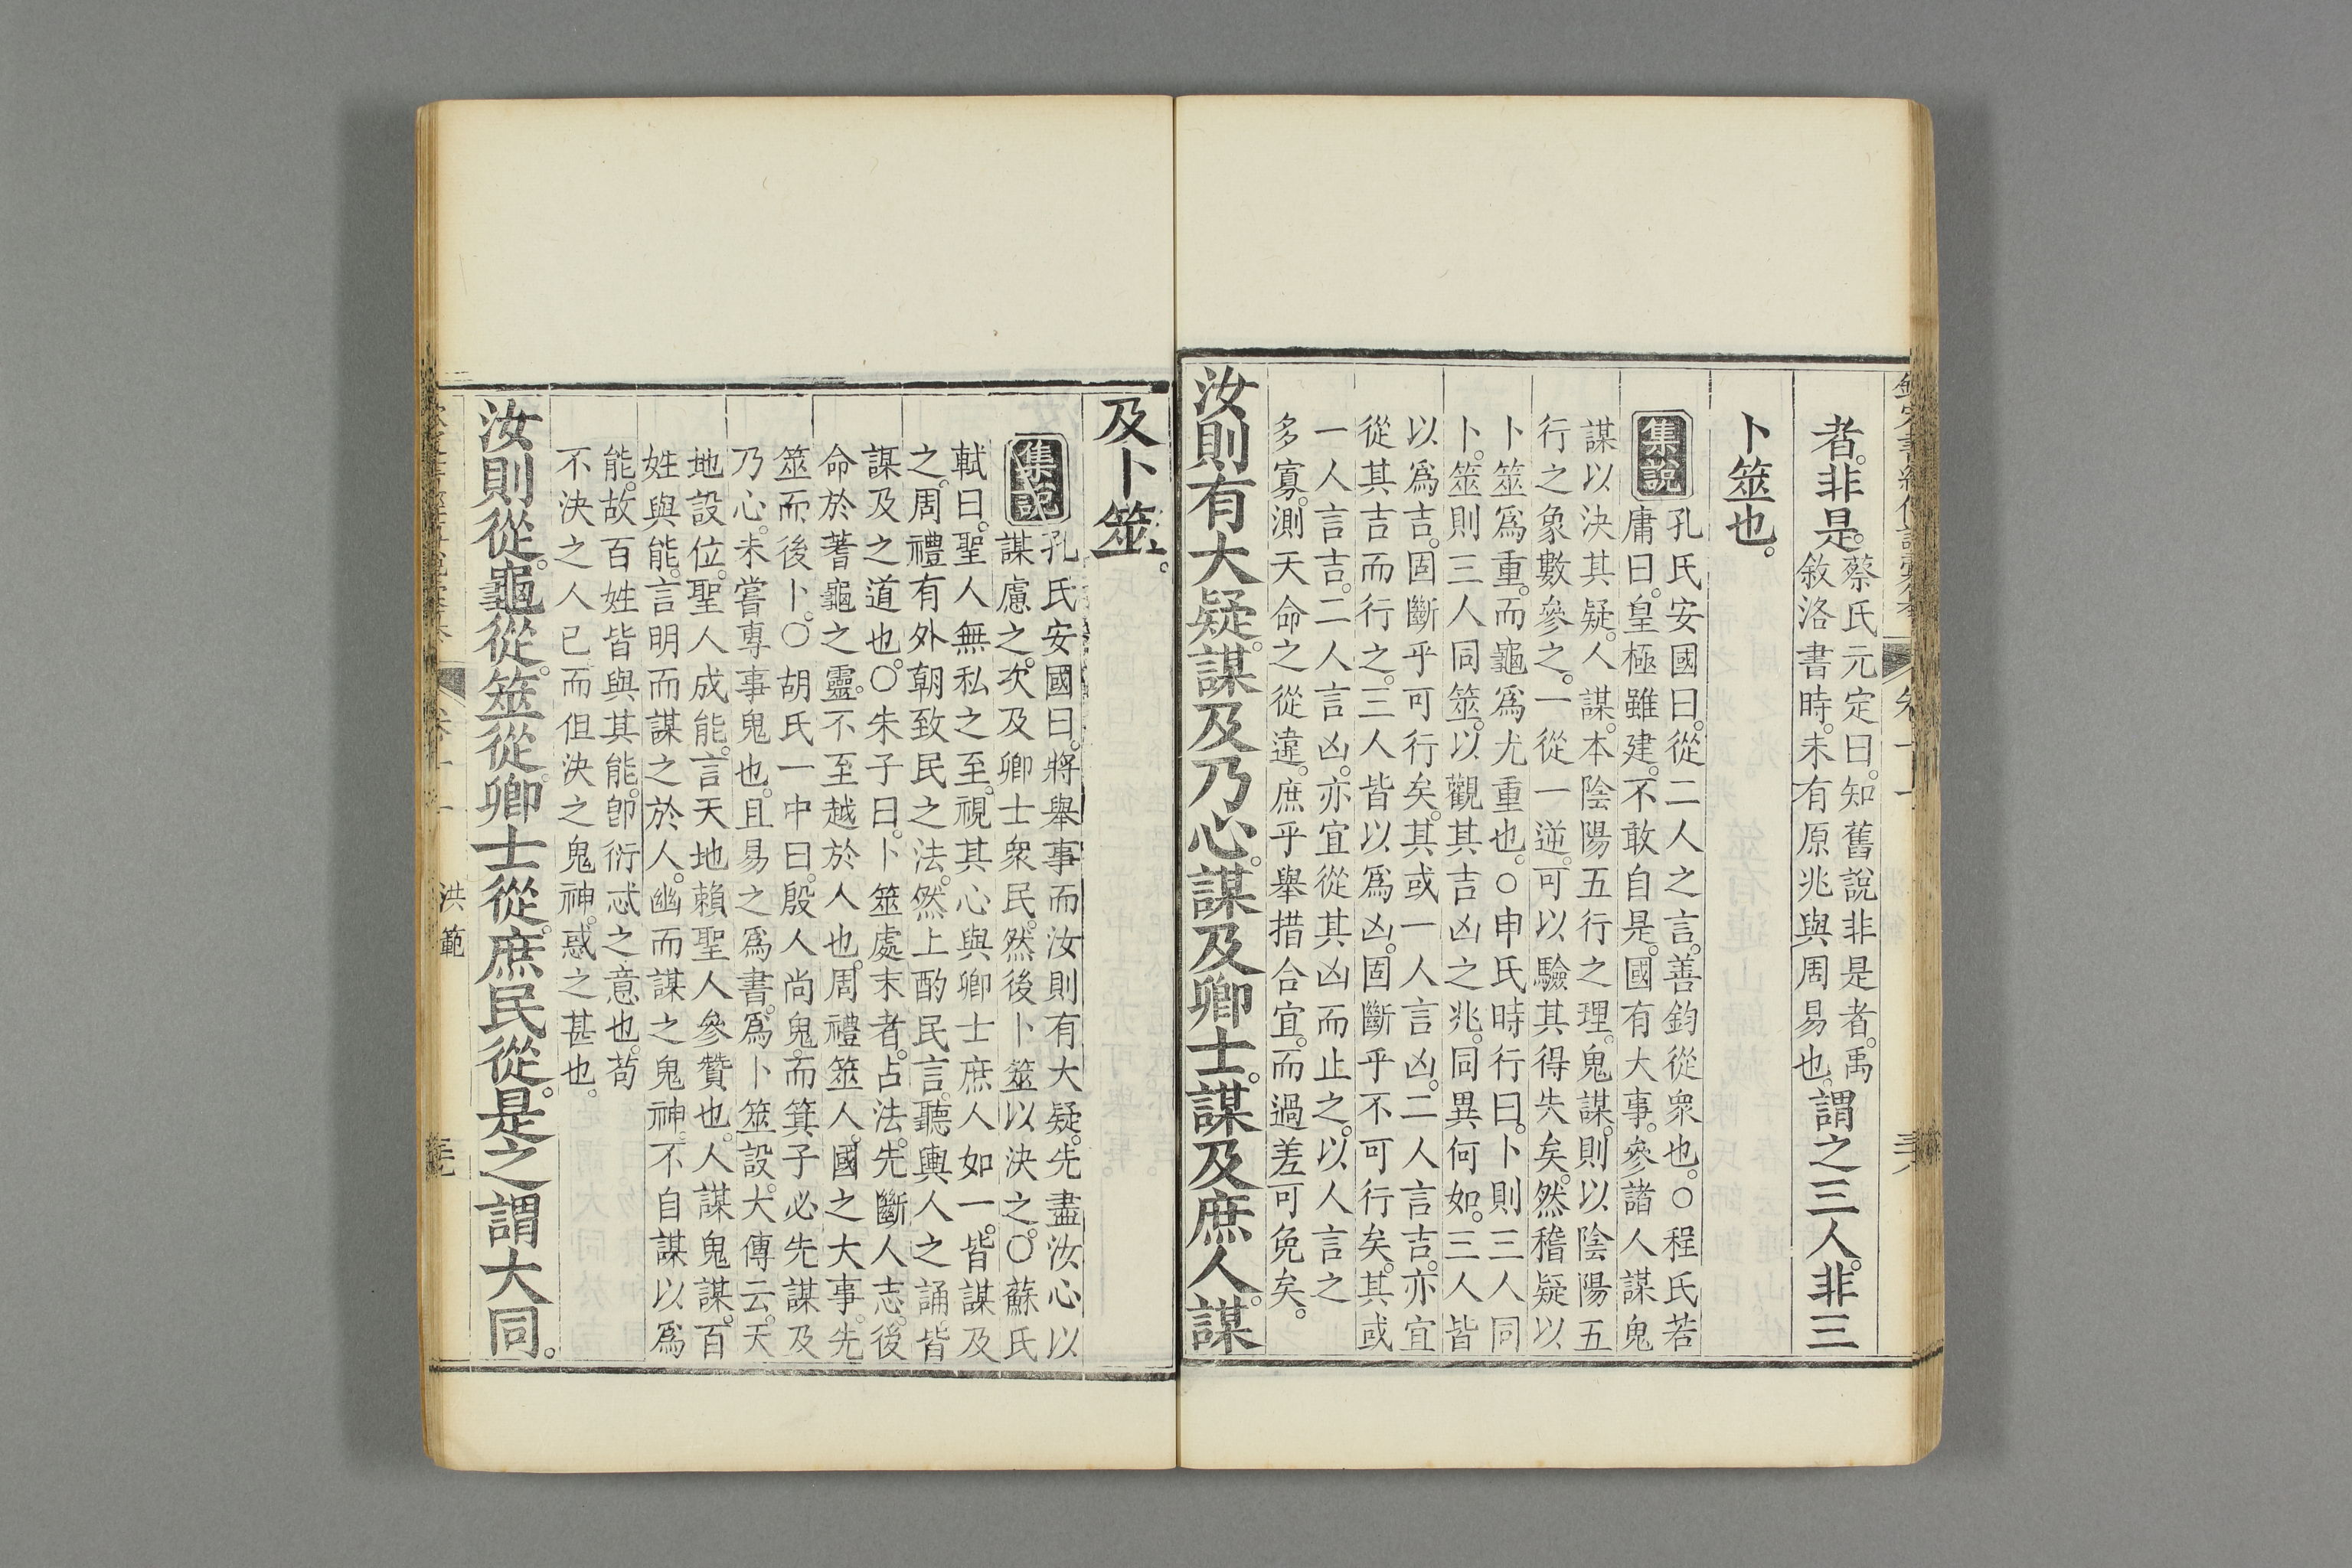 欽定書經傳說彙纂 卷十一
者。非是。
蔡氏元定曰。知舊說非是者。禹
敘洛書時。未有原兆與周易也。
謂之三人。非三
卜筮也。
集說
孔氏安國曰。從二人之言。善鈞從衆也。○程氏若
庸曰。皇極雖建。不敢自是。國有大事。參諸人謀鬼
謀以決其疑。人謀。本陰陽五行之理。鬼謀。則以陰陽五
行之象數參之。一從一逆。可以驗其得失矣。然稽疑以
卜筮爲重。而龜爲尤重也。○申氏時行曰。卜則三人同
卜。筮則三人同筮。以觀其吉凶之兆。同異何如。三人皆
以爲吉。固斷乎可行矣。其或一人言凶。二人言吉。亦宜
從其吉而行之。三人皆以爲凶。固斷乎不可行矣。其或
一人言吉。二人言凶。亦宜從其凶而止之。以人言之
多寡。測天命之從違。庶乎舉措合宜。而過差可免矣。
汝則有大疑。謀及乃心。謀及卿士。謀及庶人。謀
及卜筮。
集說
孔氏安國曰。將舉事而汝則有大疑。先盡汝心以
謀慮之。次及卿士衆民。然後卜筮以決之。○蘇氏
軾曰。聖人無私之至。視其心與卿士庶人如一。皆謀及
之。周禮有外朝致民之法。然上酌民言。聽輿人之誦。皆
謀及之道也。○朱子曰。卜筮處末者。占法。先斷人志。後
命於蓍龜之靈。不至越於人也。周禮筮人。國之大事。先
筮而後卜。○胡氏一中曰。殷人尚鬼。而箕子必先謀及
乃心。未嘗專事鬼也。且易之爲書。爲卜筮設。大傳云。天
地設位。聖人成能。言天地賴聖人參贊也。人謀鬼謀。百
姓與能。言明而謀之於人。幽而謀之鬼神。不自謀以爲
能。故百姓皆與其能。卽衍忒之意也。苟
不決之人已而但決之鬼神。惑之甚也。
汝則從。龜從。筮從。卿士從。庶民從。是之謂大同。
卷十一 洪範